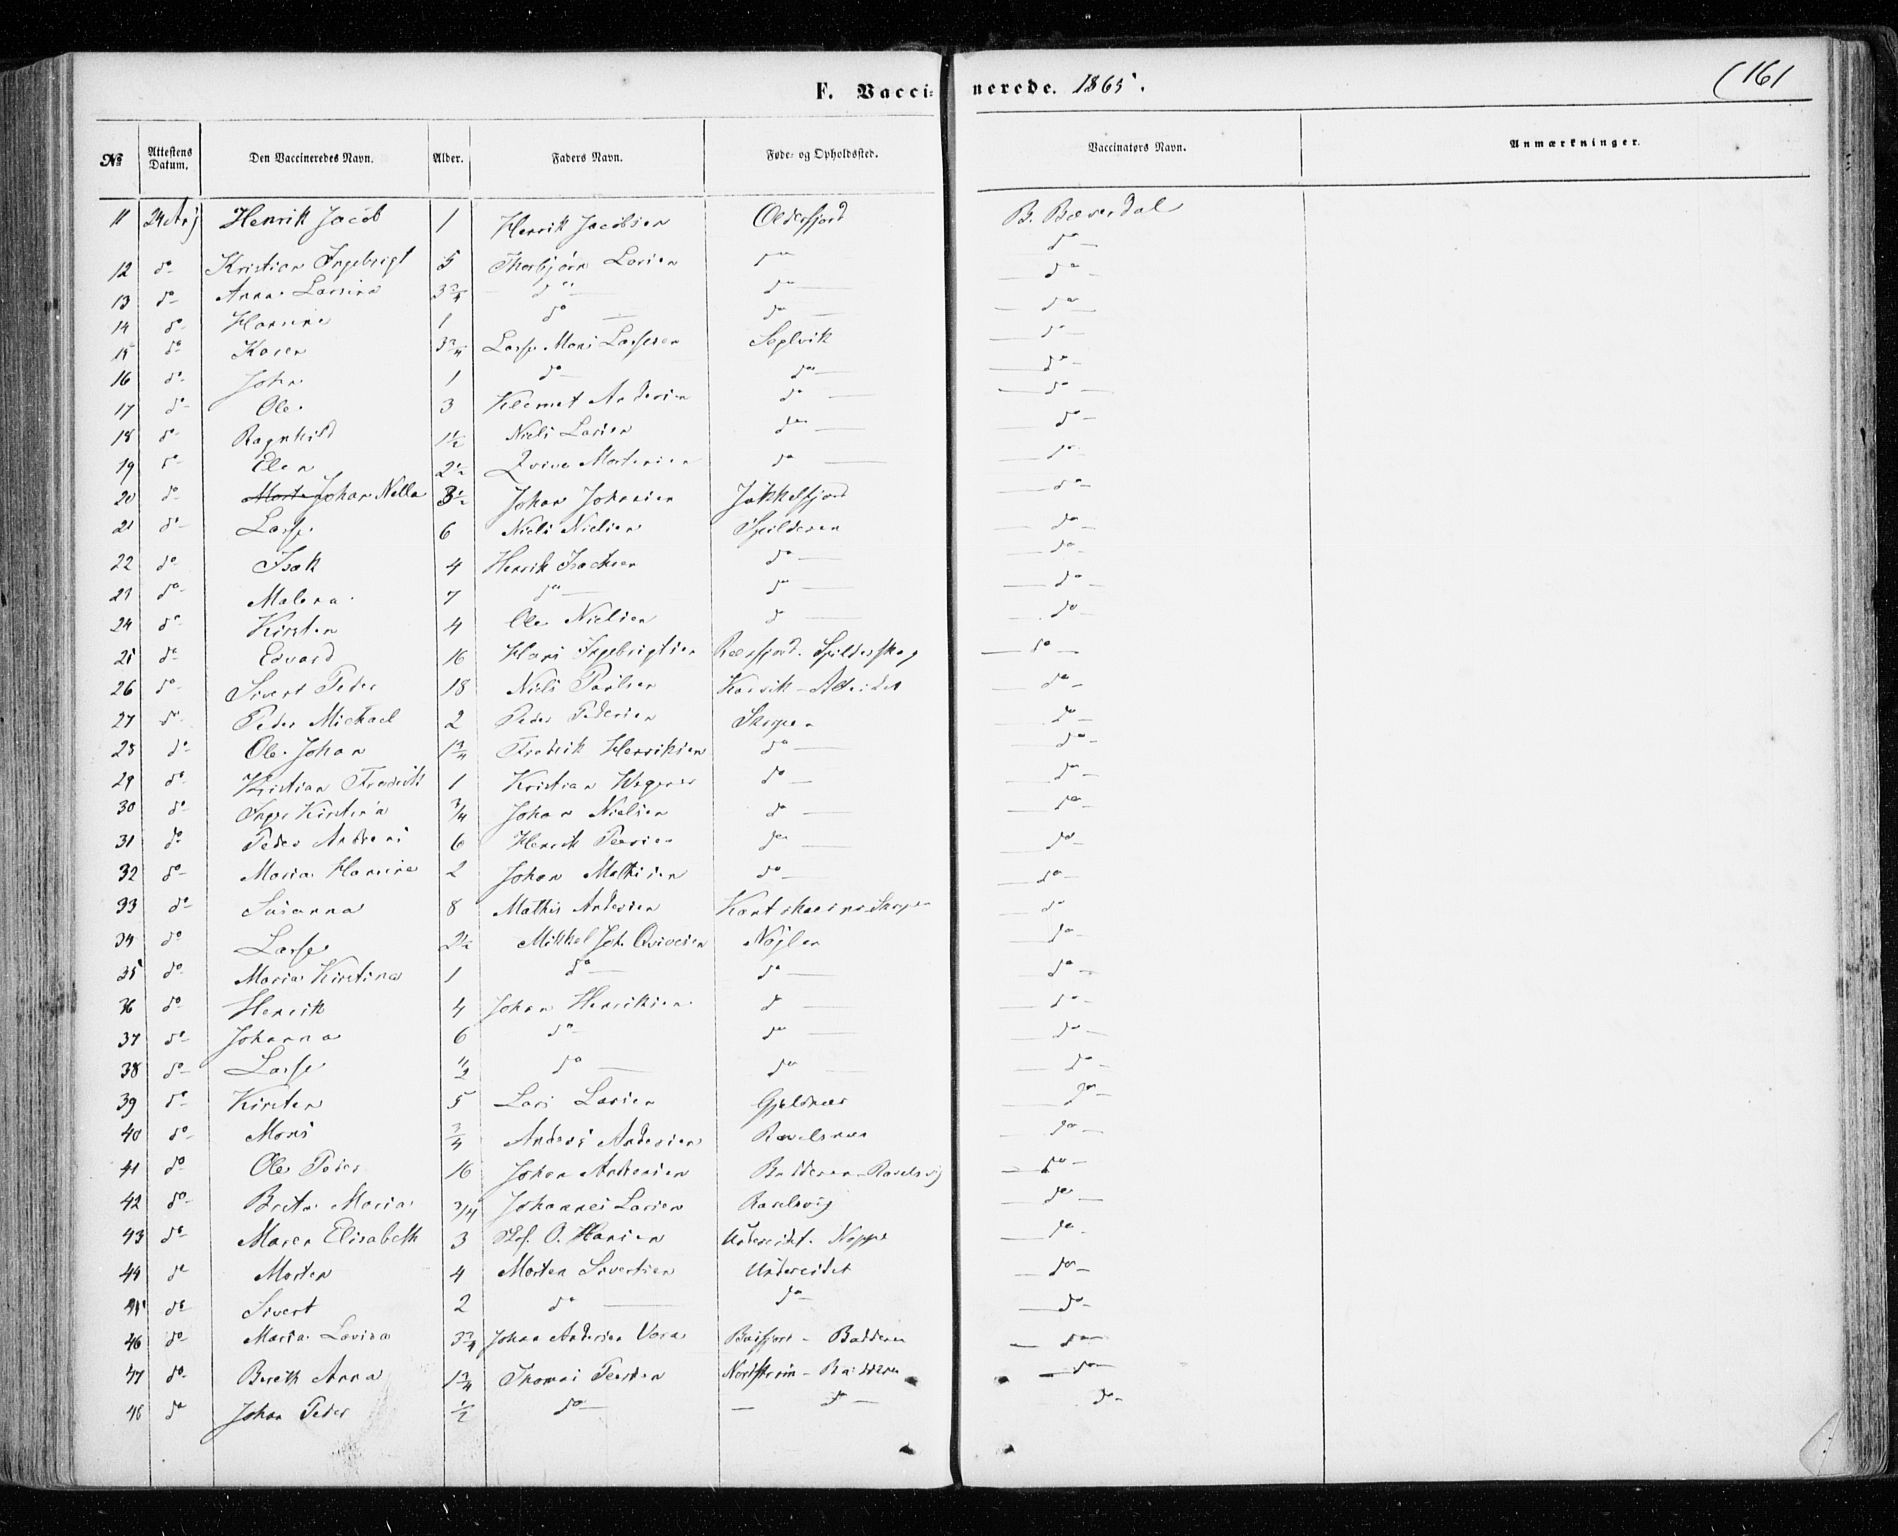 F. Vaccinerede. 1865. 161
№ Attestens Datum. Den Vaccineredes Navn. Alder. Faders Navn. Føde- og Opholdssted. Vaccinatørs Navn. Anmærkninger.
11 24 Henrik Jacob 1 Henrik Jacobsen Olderfjord B. Bæverdal
12 do Kristian Ingebrigt 5 Thorbjørn Larsen do do
13 do Anna 3 3/4 do do do
14 do Hansine 1 do do do
15 do Karen 3 3/4 Lars Mons Larsen Seglvik do
16 do John 1 do do do
17 do Ole 3 Klemet Andersen do do
18 do Ragnhild 1 1/2 Niels Larsen do do
19 do Elen 2 1/2 Qvive Mortensen do do
20 do Johan Nilla 3 1/2 Johan Johnsen Jøkkelfjord do
21 do Lars 6 Niels Nielsen Spilderen do
22 do Isak 4 Henrik Isachsen do do
23 do Malena 7 do do do
24 do Kirsten 4 Ole Nielsen do do
25 do Edvard 16 Hans Ingebrigtsen do
26 do Sivert Peder 18 Niels Paulsen Karvik - Alteidet do
27 do Peder Michael 2 Peder Pedersen do
28 do Ole Johan 1 3/4 Fredrik Henriksen do do
29 do Kristian Fredrik 1 Kristian do do
30 do Inger Kirstina 3/4 Johan Nielsen do do
31 do Peder Anders 6 Henrik Persen do do
32 do Maria Hansine 2 Johan Mathisen do do
33 do Susanna 8 Mathis Andersen do
34 do Lars 2 1/2 Mikkel Joh. Qvivesen Nøglen do
35 do Maria Kirstina 1 do do do
36 do Henrik 4 Johan Henriksen do do
37 do Johanna 6 do do do
38 do Lars 1/2 do do do
39 do Kirsten 5 Lars Larsen Gjeldnæs do
40 do Mons 3/4 Anders Andersen do
41 do Ole Peder 16 Johan Andersen Badderen - Ravelsvig do
42 do Brita Maria 3/4 Johannes Larsen Ravelsvig do
43 do Maren Elisabeth 3 O. Hansen Undereidet do
44 do Morten 4 Morten Sivertsen Undereidet do
45 do Sivert 2 do do do
46 do Maria Lovina 3 3/4 Johan Andersen Vara - Badderen do
47 do Bereth Anna 1 3/4 Thomas Persen Nordstrøm - Badderen do
48 do Johan Peder 1/2 do do do